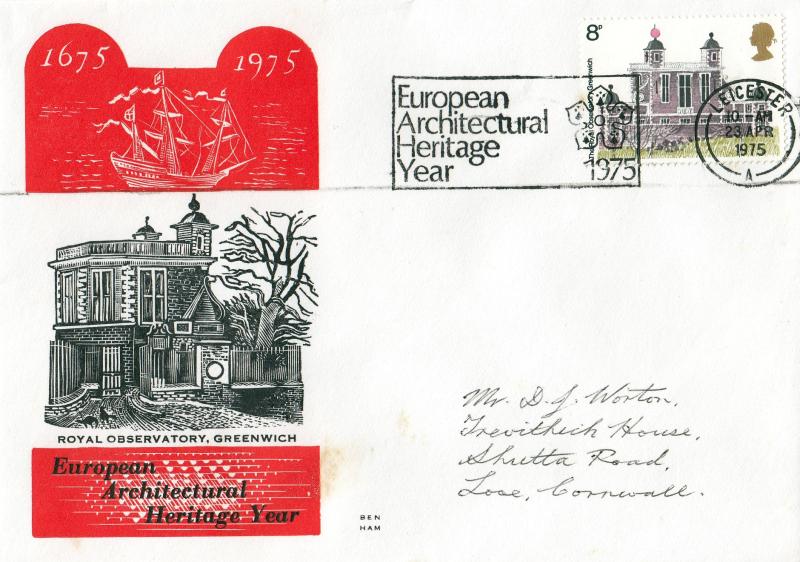 1675 1975
8P
The Royal Observatory, Greenwich
European
Architectural
Heritage
Year
1975
LEICESTER
10 - AM
23 APR
1975
A
ROYAL OBSERVATORY, GREENWICH
European
Architectural
Heritage Year
BEN
HAM
Mr. D. J. Worton,
Trevithich House,
Shutta Road,
Looe, Cornwall.